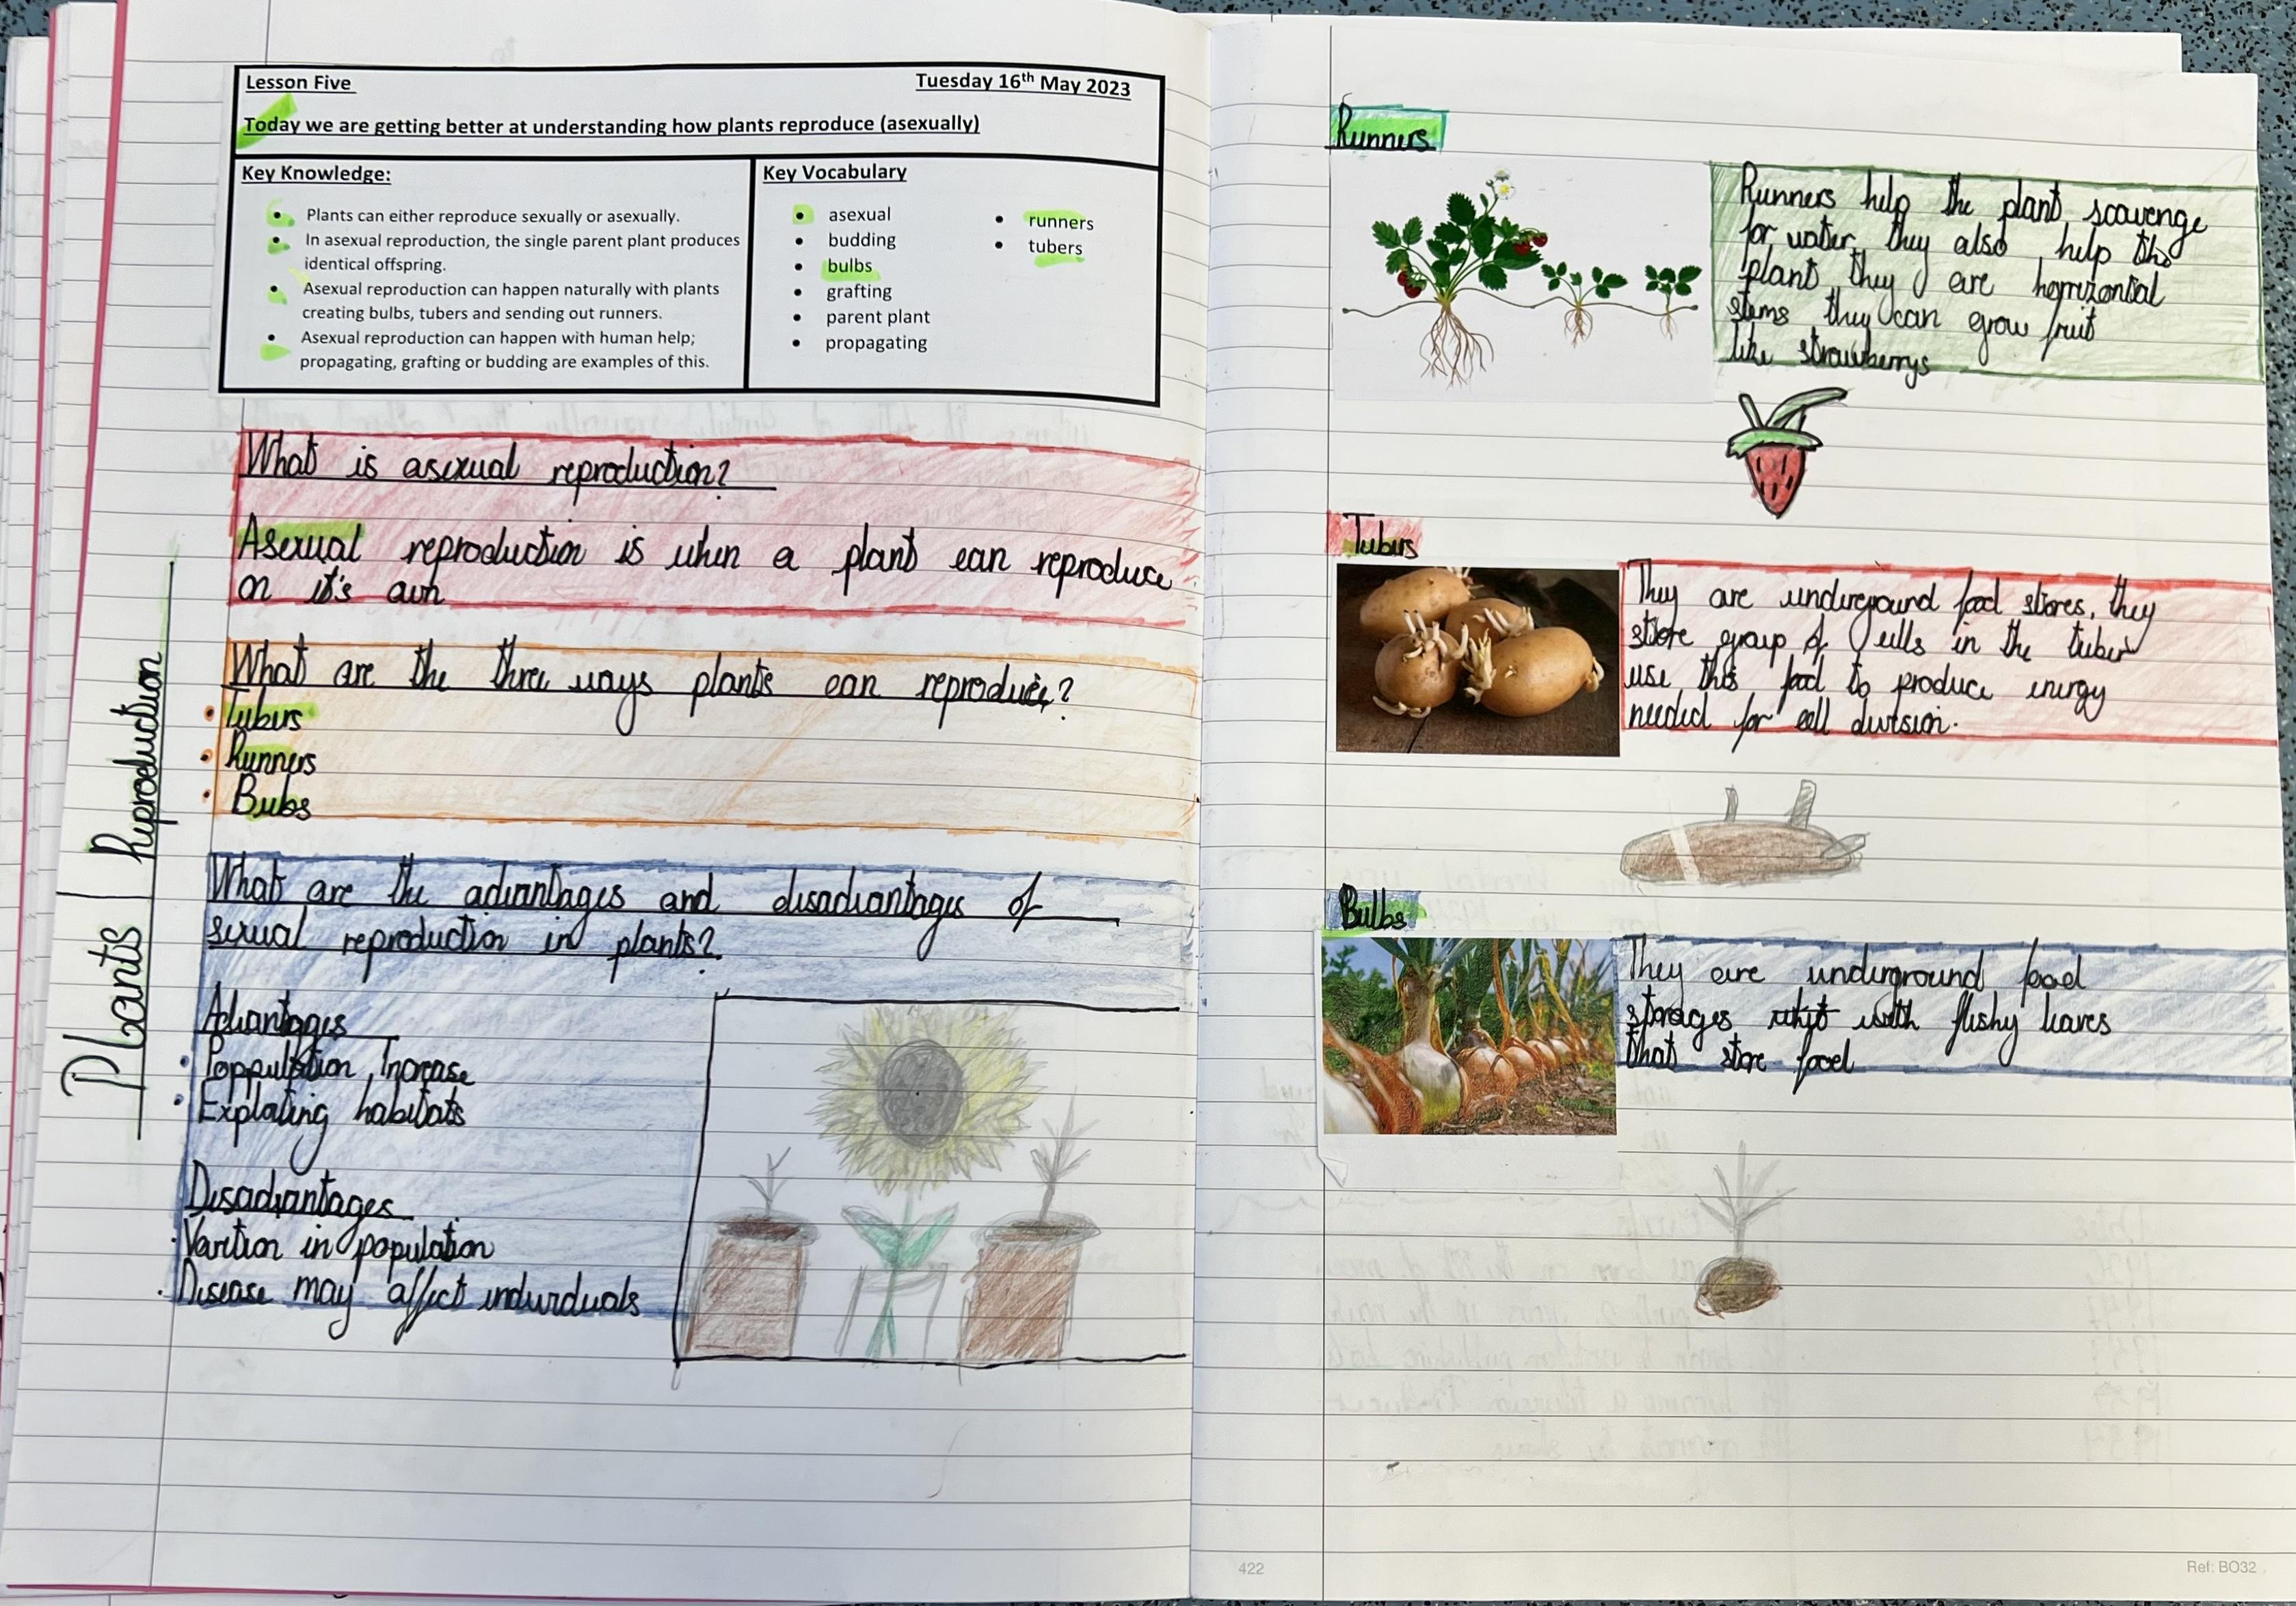 Lesson Five
Tuesday 16th May 2023
Today we are getting better at understanding how plants reproduce (asexually)
Key Knowledge:
• Plants can either reproduce sexually or asexually.
• In asexual reproduction, the single parent plant produces
identical offspring.
• Asexual reproduction can happen naturally with plants
creating bulbs, tubers and sending out runners.
• Asexual reproduction can happen with human help;
propagating, grafting or budding are examples of this.
Key Vocabulary
• asexual
• budding
• bulbs
• grafting
• parent plant
• propagating
• runners
• tubers
Plants | Reproduction
What is asexual reproduction?
Asexual reproduction is when a plant can reproduce
on it's own
What are the three ways plants can reproduce?
• Tubers
• Runners
• Bubs
What are the advantages and disadvantages of
sexual reproduction in plants?
Advantages
• Poppulation Increase
• Explating habitats
Disadvantages
• Varition in population
• Disease may affect individuals
Runners
Runners help the plant scavenge
for water they also help the
plant they are horrizontial
stems they can grow fruit
like strawberrys
Tubers
They are underground food stores, they
store group of cells in the tuber
use this food to produce energy
needed for cell division.
Bulbs
They are underground food
storages with flishy leaves
that store food
422
Ref: BO32